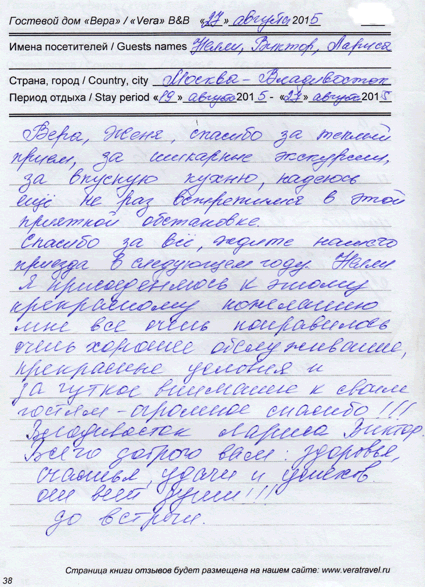 Гостевой дом «Вера» / «Vera» B&B «27» августа 2015
Имена посетителей / Guests names Нелли, Виктор, Лариса
Страна, город / Country, city Москва - Владивосток
Период отдыха / Stay period «19» августа 2015 - «27» августа 2015
Вера, Женя, спасибо за теплый
прием, за шикарные экскурсии,
за вкусную кухню, надеюсь
ещё не раз встретимся в этой
приятной обстановке.
Спасибо за всё, ждите нашего
приезда в следующем году. Нелли
Я присоединяюсь к этому
прекрасному пожеланию
мне все очень понравилось
очень хорошее обслуживание,
прекрасные условия и
за чуткое внимание к своим
гостям - огромное спасибо!!!
Владивосток Лариса Виктор.
Всего доброго вам: здоровья,
счастья, удачи и успехов
от всей души!!!
до встречи.
Страница книги отзывов будет размещена на нашем сайте: www.veratravel.ru
38